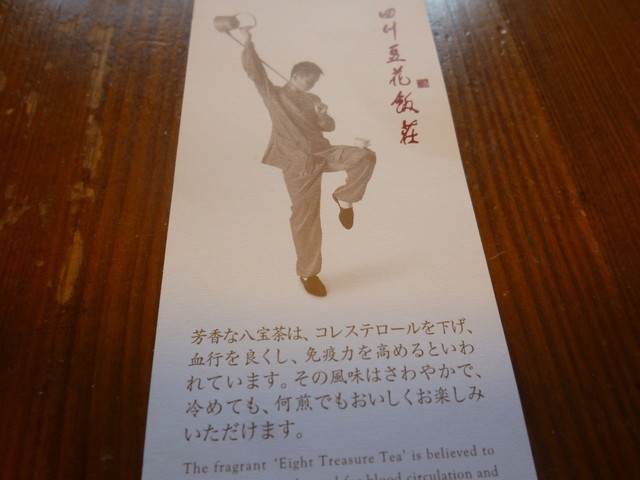 四川豆花飯莊
芳香な八宝茶は、コレステロールを下げ、
血行を良くし、免疫力を高めるといわ
れています。その風味はさわやかで、
冷めても、何煎でもおいしくお楽しみ
いただけます。
The fragrant 'Eight Treasure Tea' is believed to
for blood circulation and